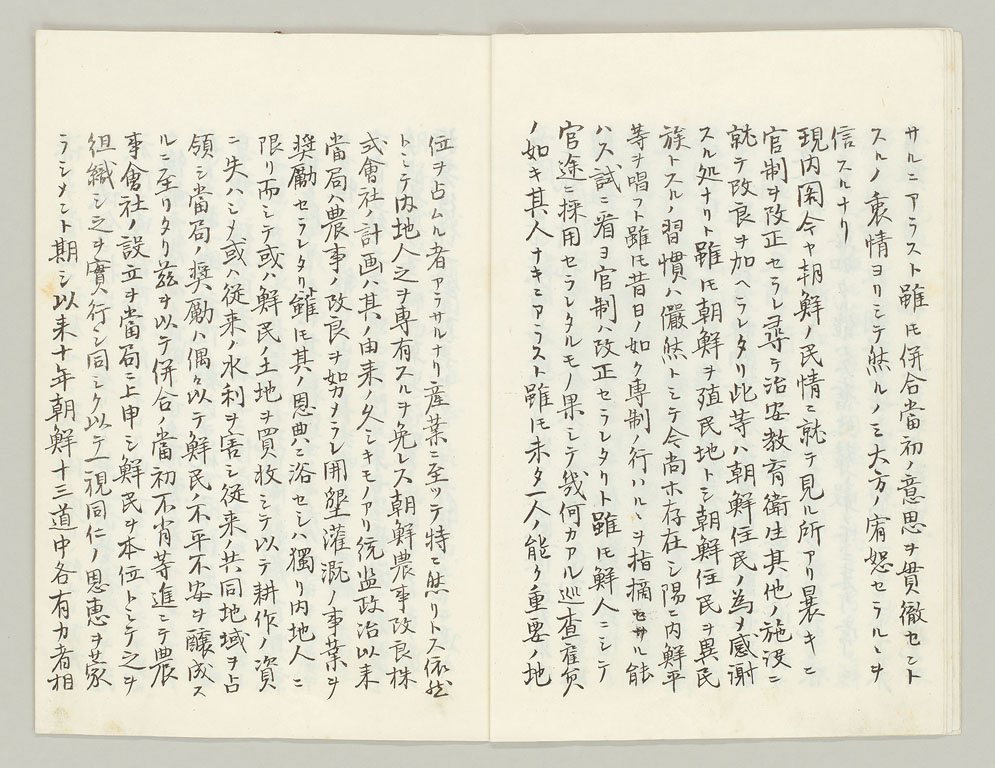 サルニアラスト雖モ併合當初ノ意思ヲ貫徹セント
スルノ衷情ヨリシテ然ルノミ大方ノ宥恕セラルヽヲ
信スルナリ
現内閣今ヤ朝鮮ノ民情ニ就テ見ル所アリ曩キニ
官制ヲ改正セラレ尋テ治安教育衛生其他ノ施設ニ
就テ改良ヲ加ヘラレタリ此等ハ朝鮮住民ノ為メ感謝
スル処ナリト雖モ朝鮮ヲ殖民地トシ朝鮮住民ヲ異民
族トスルノ習慣ハ儼然トシテ今尚ホ存在シ陽ニ内鮮平
等ヲ唱フト雖モ昔日ノ如ク専制ノ行ハルヽヲ指摘セサル能
ハス試ニ省ヨ官制ハ改正セラレタリト雖モ鮮人ニシテ
官途ニ採用セラレタルモノ果シテ幾何カアル巡査雇員
ノ如キ其人ナキニアラスト雖モ未タ一人ノ能ク重要ノ地
位ヲ占ムル者アラサルナリ産業ニ至ツテ特ニ然リトス依然
トシテ内地人之ヲ専有スルヲ免レス朝鮮農事改良株
式會社ノ計画ハ其ノ由来ノ久シキモノアリ統監政治以来
當局ハ農事ノ改良ヲ如努メラレ開墾灌漑ノ事業ヲ
奨勵セラレタリ雖モ其ノ恩典ニ浴セシハ獨リ内地人ニ
限リ而シテ或ハ鮮民ノ土地ヲ買收シテ以テ耕作ノ資
ニ失ハシメ或ハ従来ノ水利ヲ害シ従来共同地域ヲ占
領シ當局ノ奨勵ハ偶々以テ鮮民ノ不平不安ヲ醸成ス
ルニ至リタリ茲ヲ以テ併合ノ當初不肖等進ニテ農
事會社ノ設立ヲ當局ニ上申シ鮮民ヲ本位トシテ之ヲ
組織シ之ヲ實行シ同シク以テ一視同仁ノ恩恵ヲ蒙
ラシメント期シ以来十年朝鮮十三道中各有力者相